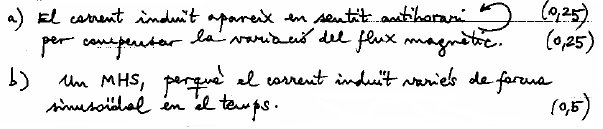 a) El corrent induït apareix en sentit antihorari (0,25)
per compensar la variació del flux magnètic. (0,25)
b) Un MHS, perquè el corrent induït variés de forma
sinusoïdal en el temps. (0,5)